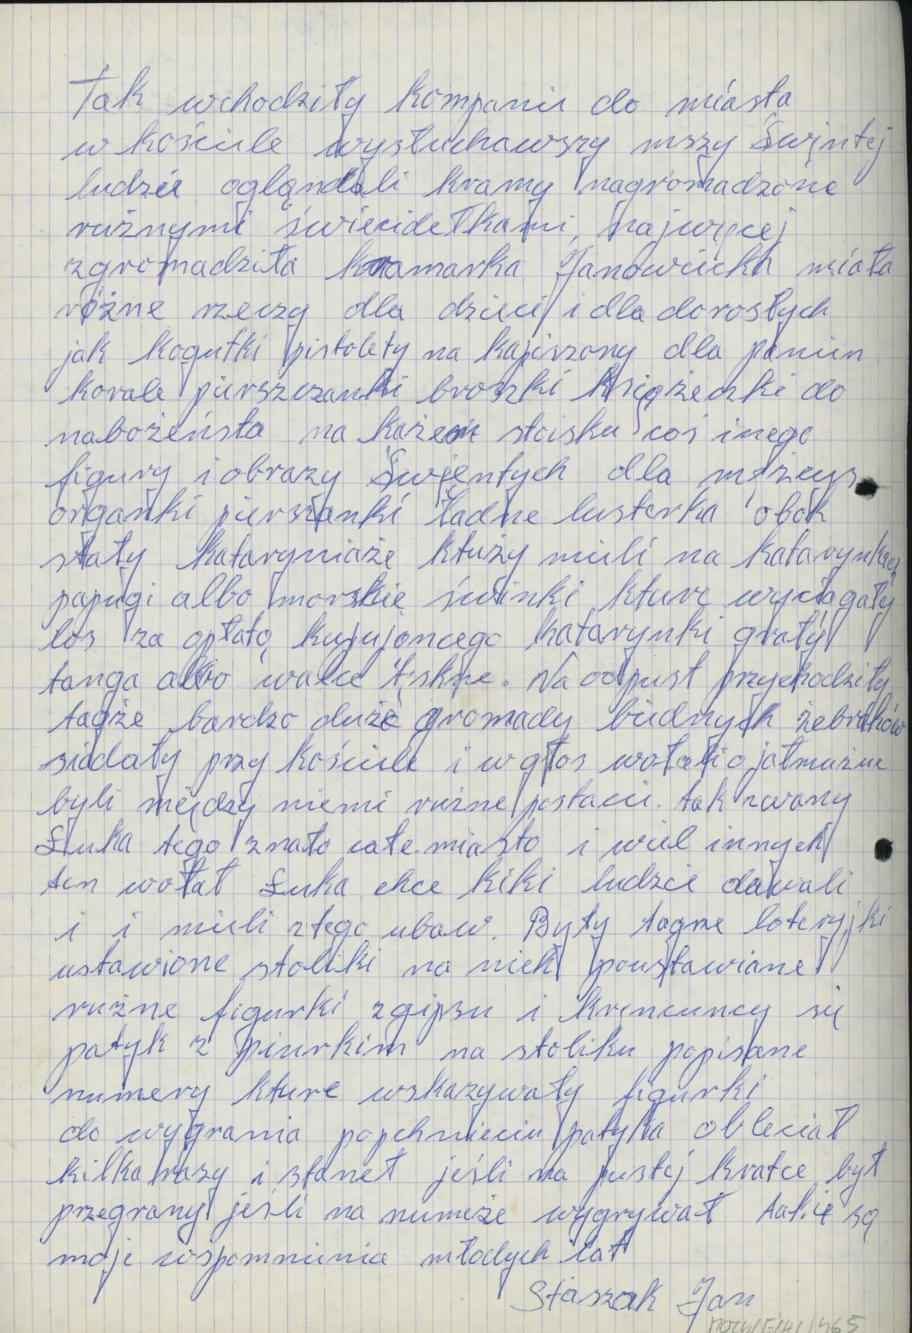 Tak wchodziły kompanii do miasta
w kościele wysłuchawszy mszy Świntej
ludzie oglądali kramy nagromadzone
rużnymi świecidełkami, najwęcej
zgromadziła kramarka Janowicka miała
różne rzeczy dla dzieci i dla dorosłych
jak kogutki pistolety na kapiszony dla panin
korale pierszczanki broszki książeczki do
nabożeństa na każem stoisku coś inego
figury i obrazy Świentych dla mężczys
organki pierszanki ładne lusterka obok
stały kataryniaże ktuży mieli na katarynkach
papugi albo morskie świnki kture wyciągały
los za opłatą kupujoncego katarynki grały
tanga albo walce tęskne. Na odpust przychodziły
tagże bardzo duże gromady biednych żebraków
siadały przy kościele i w głos wołali o jałmużne
byli między niemi rużne postacie. tak zwany
Łuka tego znało całe miasto i wiel innych
ten wołał Łuka chce kiki ludzie dawali
i i mieli z tego ubaw. Były tagrze loteryjki
ustawione stoliki na nich poustawiane
rużne figurki zgipsu i krencuncy się
patyk z piurkim na stoliku popisane
numery kture wskazywały figurki
do wygrania popchnieciu patyka obleciał
kilka razy i staneł jeśli na pustej kratce był
przegrany jeśli na numeże wygrywał takie są
moje wspomninia młodych lat
Staszak Jan